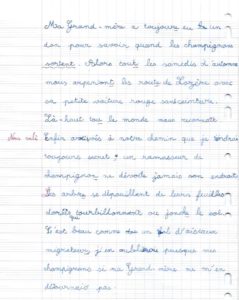 Ma Grand-mère a toujours eu un
don pour savoir quand les champignons
sortent. Alors tout les samedis d'automne
nous arpentons les routes de Lozère avec
sa petite voiture rouge sanseinture.
Là-haut tout le monde nous reconnaît
Enfin arrivés à notre chemin que je
toujours secret, un ramasseur de
champignon se dévoile jamais son endroit
Les arbre se dépouillent de leurs feuilles
qui tourbillonnent ou jonche le sol
C'est beau comme un vol d'oiseaux
migrateur, j'en oublierais presque mes
champignons si ma Grand-mère ne m'en
pas.